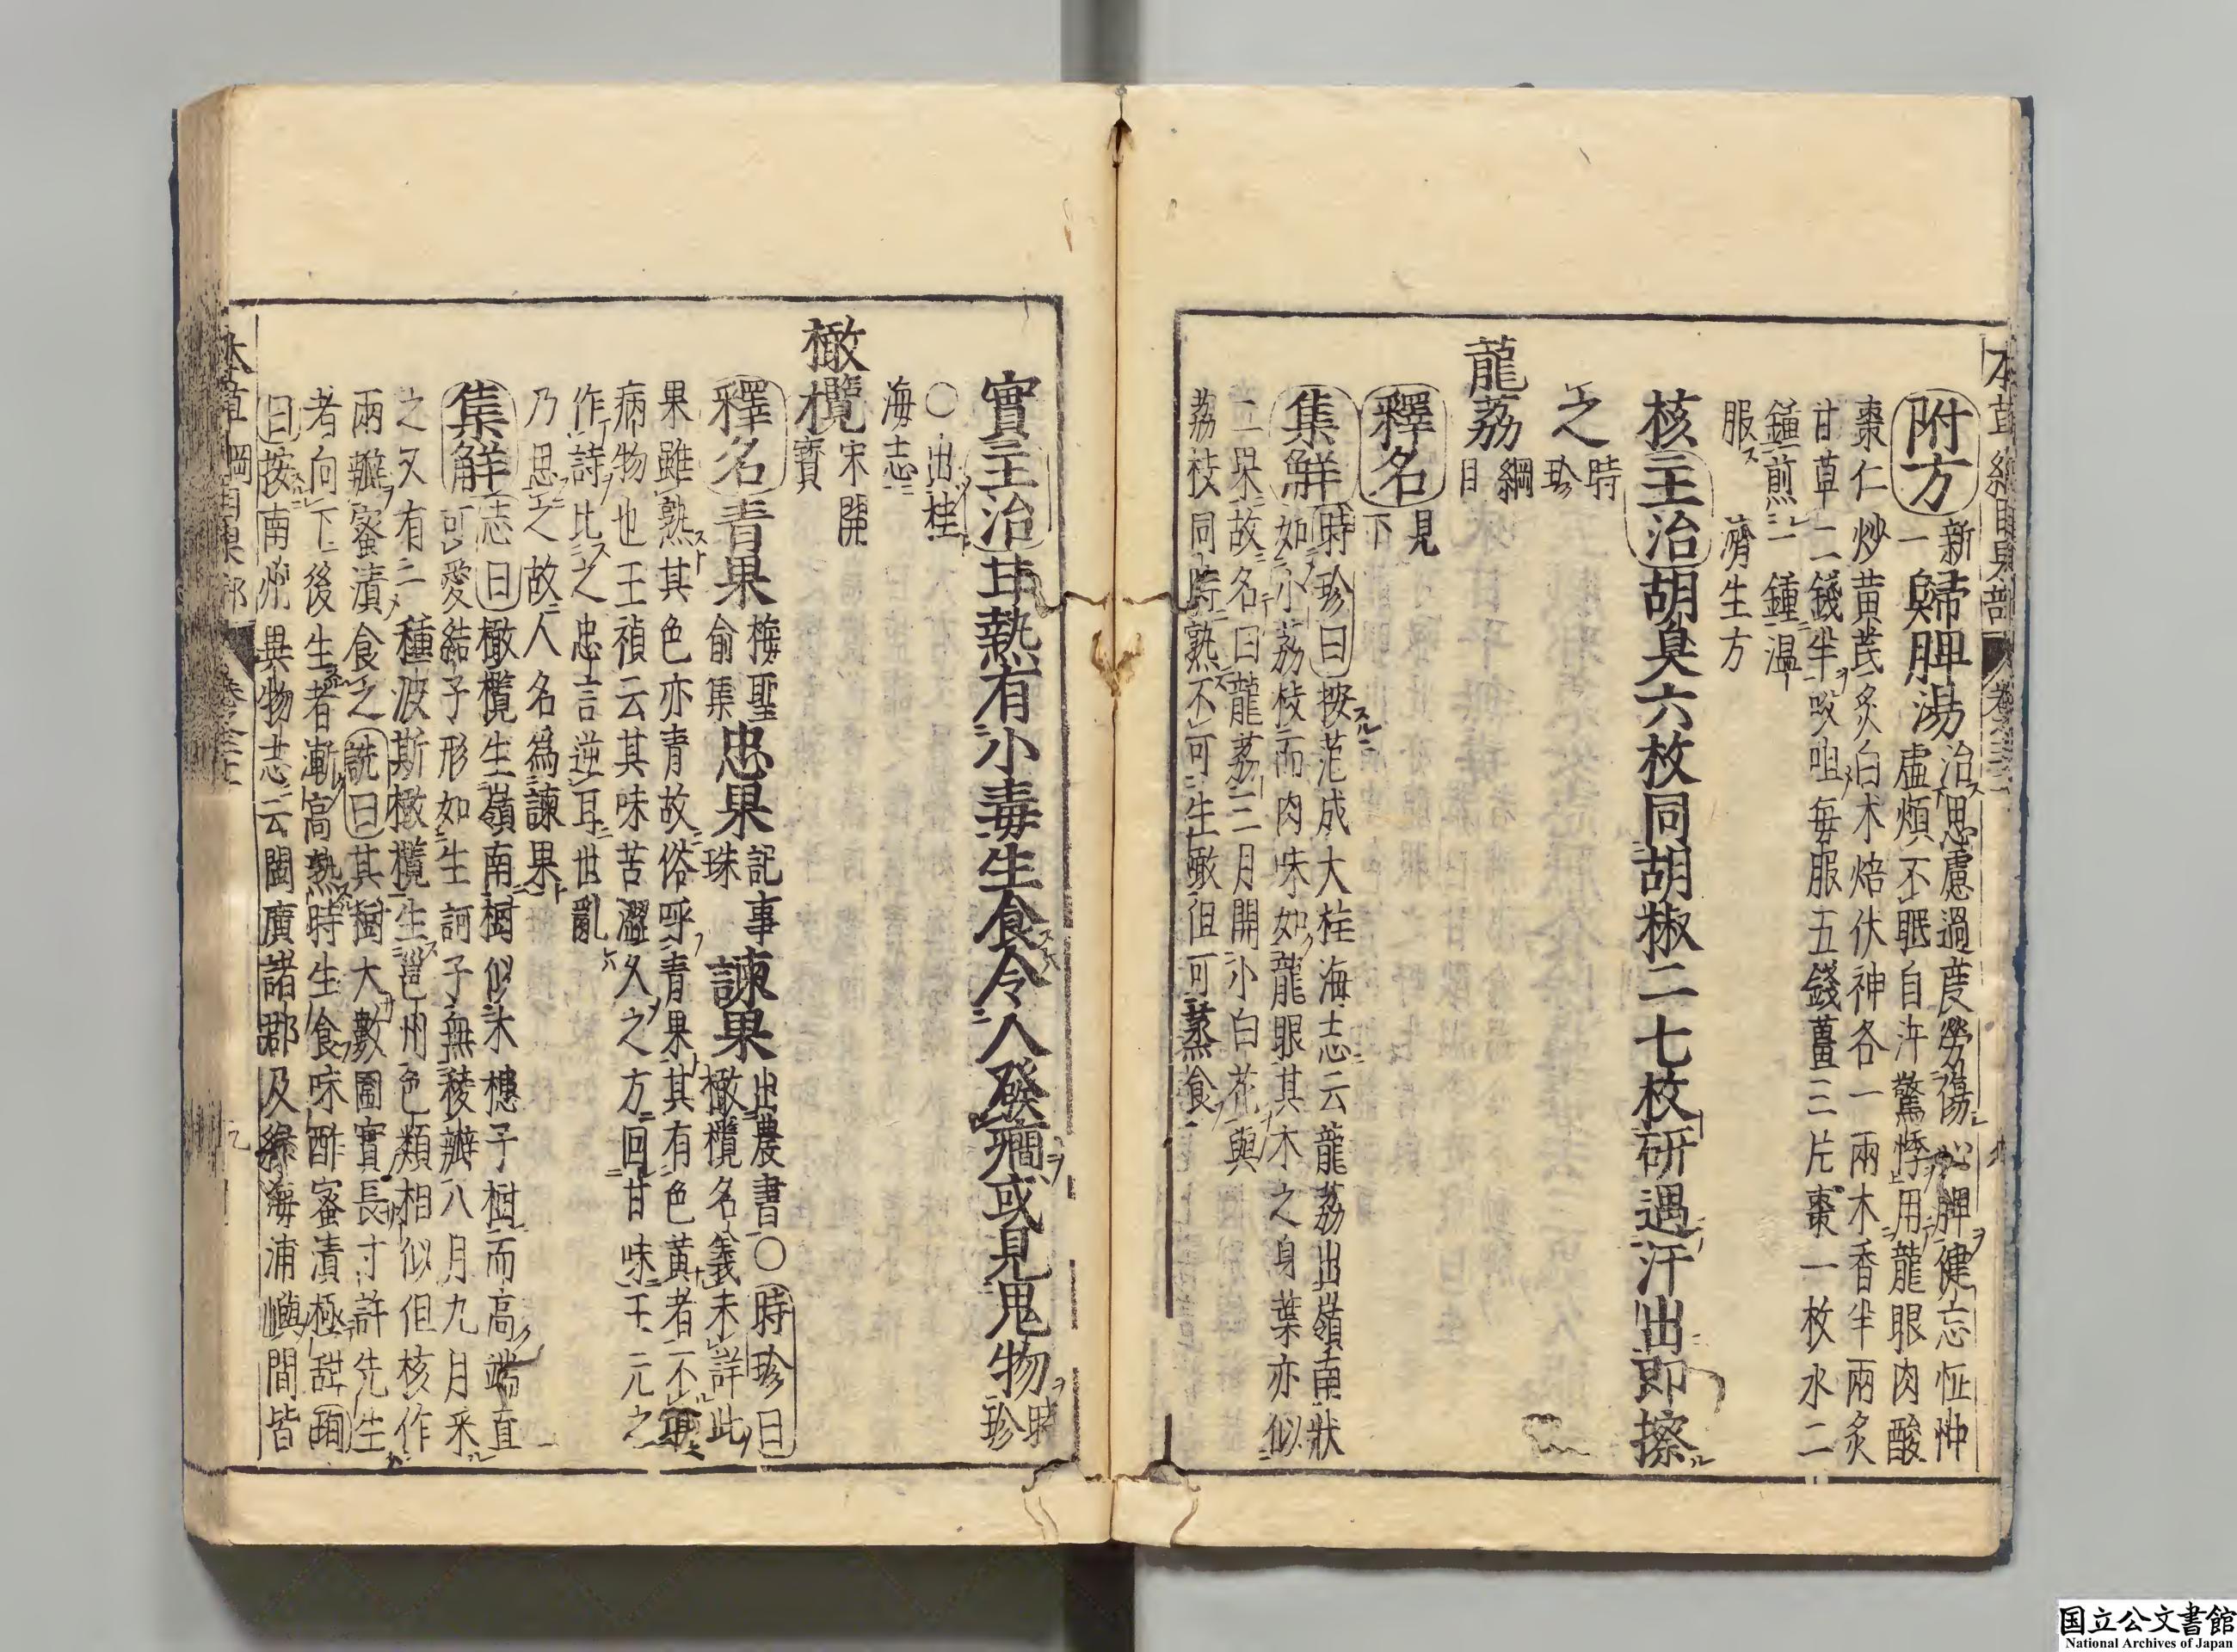 本草綱目果部 卷三十一
附方新一歸脾湯治思慮過度勞傷心脾健忘怔忡
虛煩不眠自汗驚悸用龍眼肉酸
棗仁炒黃芪炙白朮焙伏神各一兩木香半兩炙
甘草二錢半㕮咀每服五錢薑三片棗一枚水二
鍾煎一鍾溫
服濟生方
核主治胡臭六枚同胡椒二七枚研遇汗出即擦
之時珍
龍荔綱目
釋名見下
集解時珍曰按范成大桂海志云龍荔出嶺南狀
如小荔枝而肉味如龍眼其木之身葉亦似
二果故名曰龍荔三月開小白花與
荔枝同時熟不可生啖但可蒸食
實主治甘熱有小毒生食令人發癇或見鬼物時珍
○出桂
海志
橄欖宋開寶
釋名青果梅聖俞集忠果記事珠諫果出農書○時珍曰
橄欖名義未詳此
果雖熟其色亦青故俗呼青果其有色黃者不堪
病物也王禎云其味苦澀久之方回甘味王元之
作詩比之忠言逆耳世亂
乃思之故人名為諫果
集解志曰橄欖生嶺南樹似木槵子樹而高端直
可愛結子形如生訶子無稜瓣八月九月采
之又有一種波斯橄欖生邕州色類相似但核作
兩瓣蜜漬食之詵曰其樹大數圍實長寸許先生
者向下後生者漸高熟時生食味酢蜜漬極甜珣
曰按南州異物志云閩廣諸郡及緣海浦嶼間皆
本草綱目果部 卷三十一
国立公文書館
National Archives of Japan